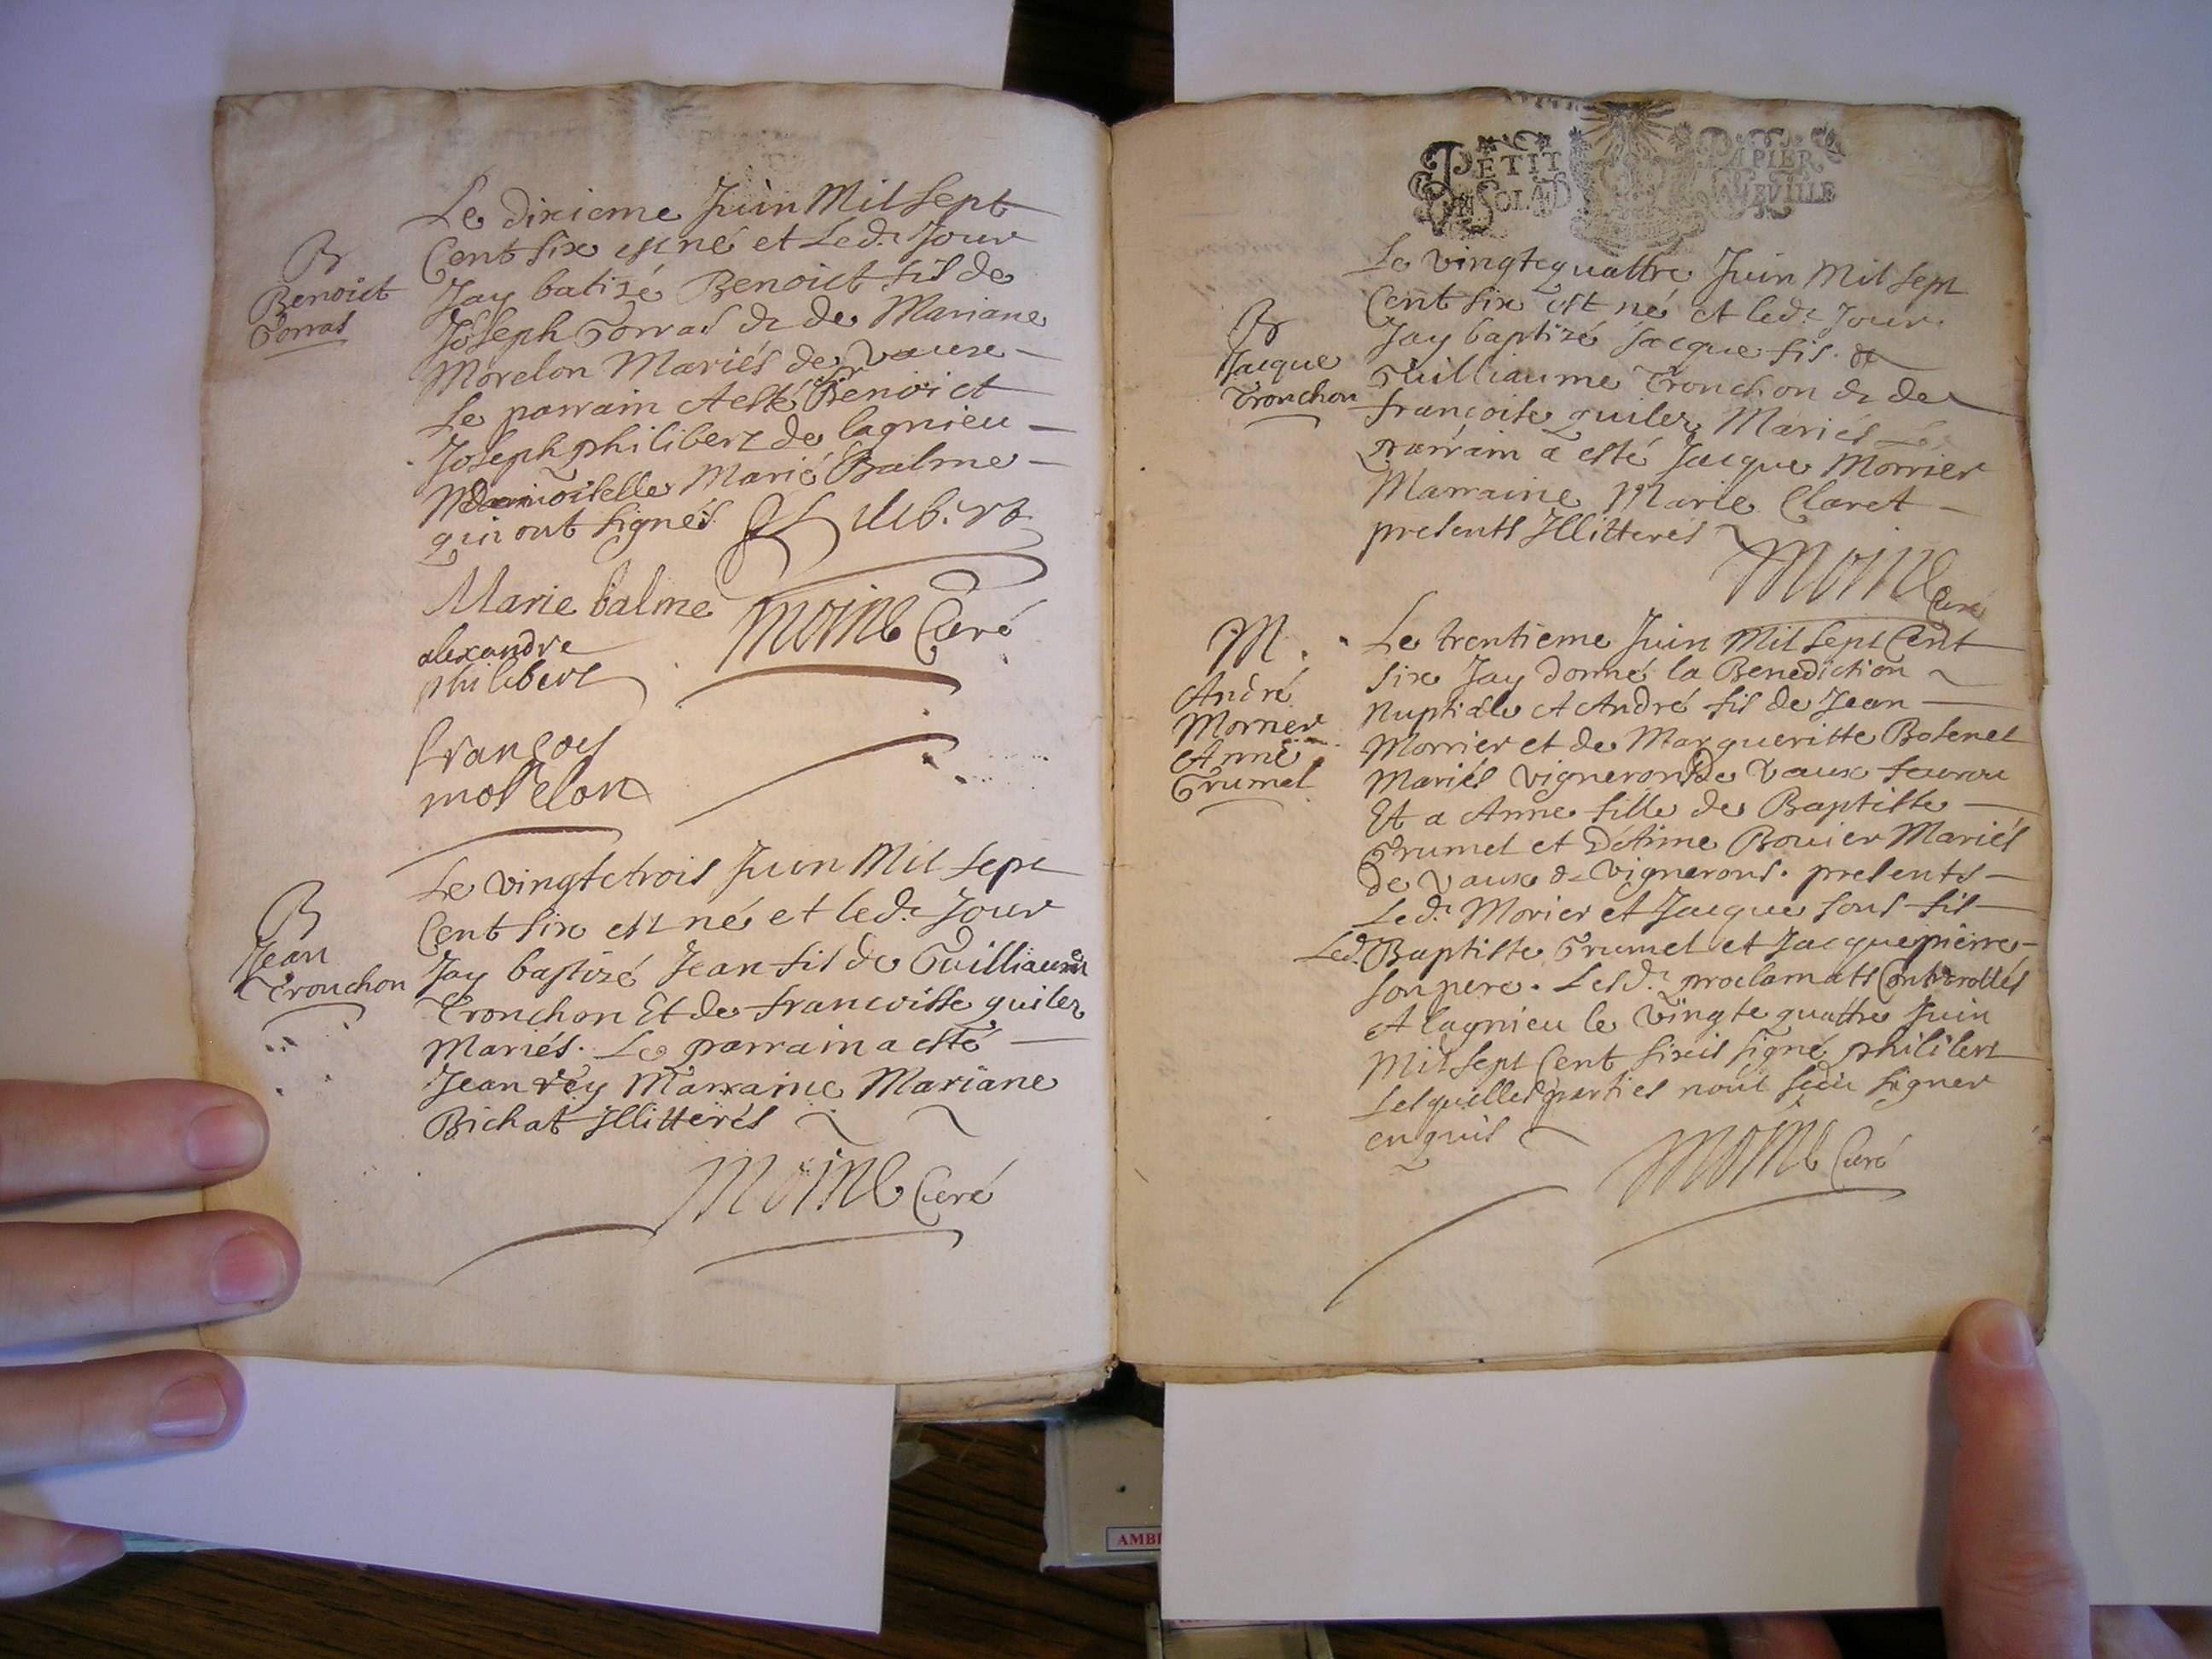 Le dixieme Juin Mil Sept
Cent Six est né et Led.t Jour
Jay batizé Benoict fil de
Joseph Torras & de Mariane
Morelon Mariés de Vaux
Le parrain A esté Sr Benoict
Joseph philibert de lagnieu
Mdamoiselle Marie Balme
qui ont signes
B
Benoict
Torras
Marie balme
Moine Curé
alexandre
philibert
françoy
morelon
Le vingtetrois Juin Mil Sept
Cent Six est né et led.t Jour
Jay baptizé Jean fil de Guilliaume
Tronchon Et de francoisse quiler
Mariés. Le parrain a esté
Jean rey Marraine Mariane
Bichat Illitterés
B
Jean
Tronchon
Moine Curé
PETIT PAPIER
DE SOLAD LAFEVILLE
Le vingtequattre Juin Mil Sept
Cent Six est né et led.t Jour
Jay baptizé Jacque fil de
Guilliaume Tronchon & de
françoise quiler Mariés Le
parrain a esté Jacque Morrier
Marraine Marie Claret
presents Illitterés
B
Jacque
Tronchon
Moine Curé
Le trentieme Juin Mil Sept Cent
Six Jay donné la Benediction
Nuptiale A André fil de Jean
Morrier et de Margueritte Bosenet
Mariés vignerons de Vaux
Et a Anne fille de Baptiste
Trumel et D'Anne Bouier Mariés
de Vaux & vignerons. presents
Led.t Morier et Jacque sons fil
Led.t Baptiste Trumel et Jacque pierre
son pere. Lesd.t proclamats Controllés
A lagnieu le vingte quattre Juin
Mil Sept Cent Six signé philibert
Lesquelles parties nont sceu signer
enquis
M
André
Morrier
Anne
Trumel
Moine Curé
AMB